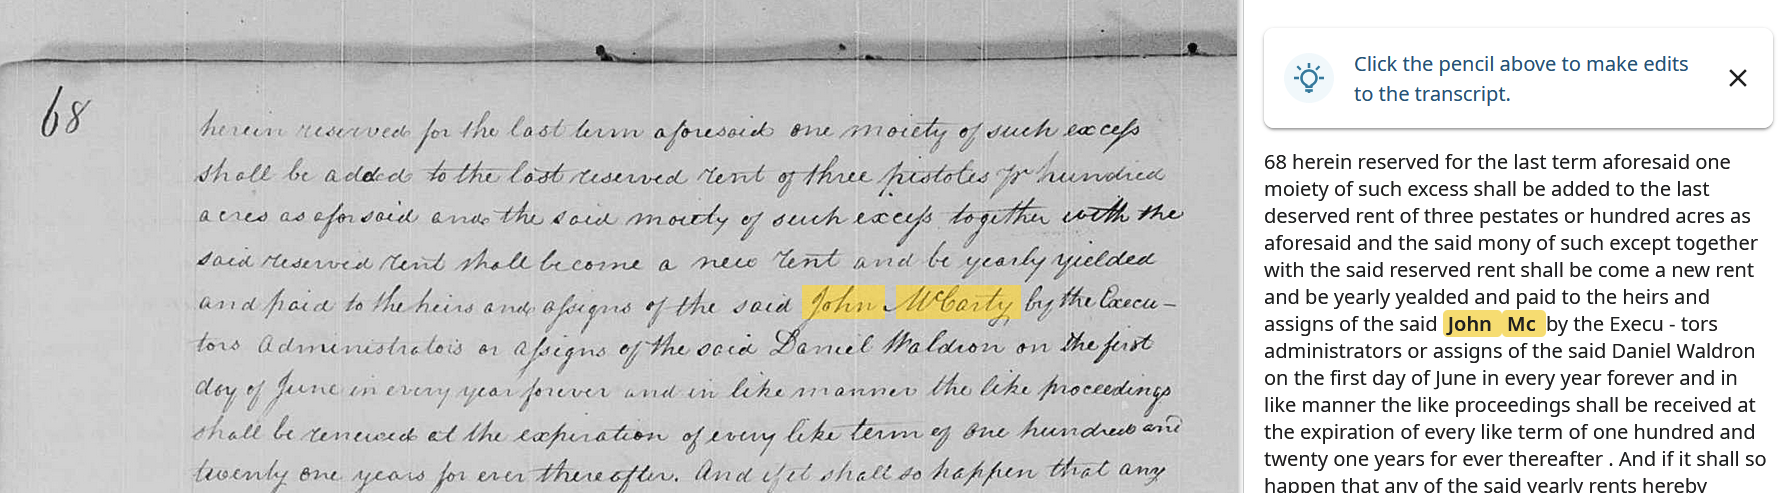 68
herein reserved for the last term aforesaid one moiety of such excess
shall be added to the last reserved rent of three pistoles pr hundred
acres as aforsaid and the said moiety of such excess together with the
said reserved rent shall become a new rent and be yearly yielded
and paid to the heirs and assigns of the said John McCarty by the Execu-
tors Administrators or assigns of the said Daniel Waldron on the first
day of June in every year forever and in like manner the like proceedings
shall be renewed at the expiration of every like term of one hundred and
twenty one years for ever thereafter. And if it shall so happen that any
Click the pencil above to make edits
to the transcript.
68 herein reserved for the last term aforesaid one
moiety of such excess shall be added to the last
deserved rent of three pestates or hundred acres as
aforesaid and the said mony of such except together
with the said reserved rent shall be come a new rent
and be yearly yealded and paid to the heirs and
assigns of the said John Mc by the Execu - tors
administrators or assigns of the said Daniel Waldron
on the first day of June in every year forever and in
like manner the like proceedings shall be received at
the expiration of every like term of one hundred and
twenty one years for ever thereafter . And if it shall so
happen that any of the said yearly rents hereby